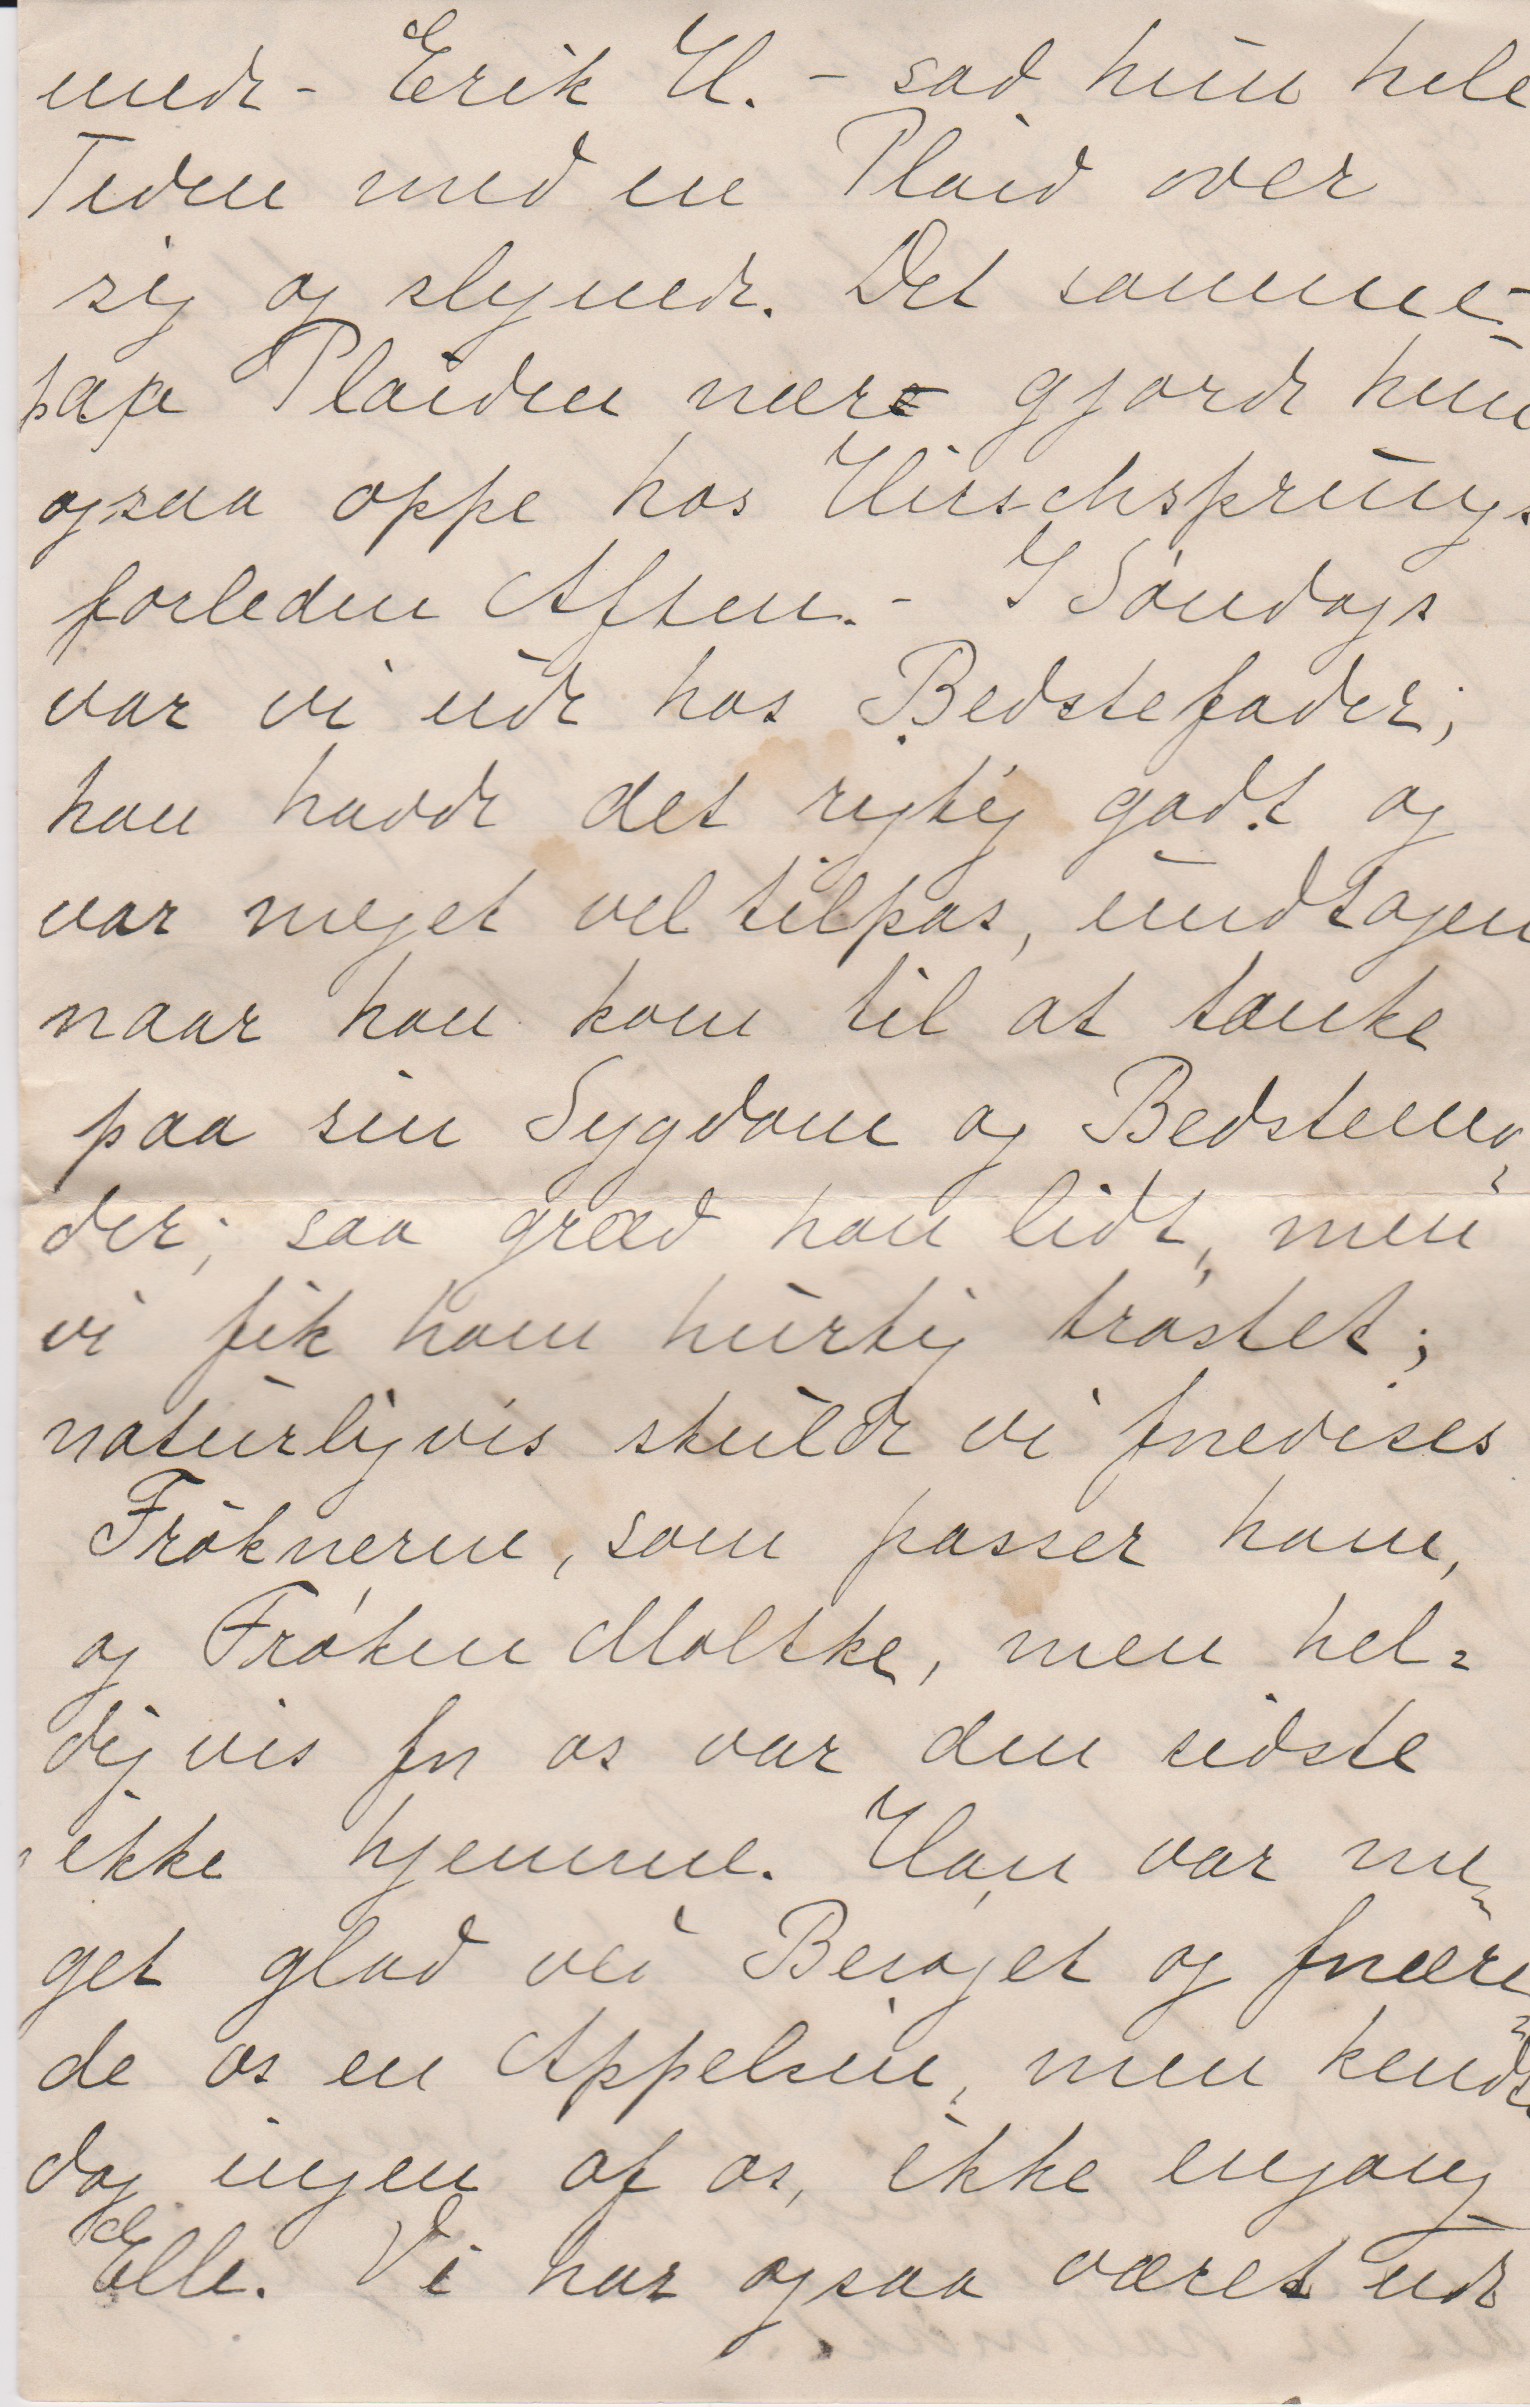 mede - Erik H. - sad hun hele
Tiden med en Plaid over
sig og slyngede. Det samme -
paa Plaiden nær gjorde hun
ogsaa oppe hos Hirschsprungs
forleden Aften. - I Søndags
var vi ude hos Bedstefader;
han havde det rigtig godt og
var meget vel tilpas, undtagen
naar han kom til at tænke
paa sin Sygdom og Bedstemo-
der; saa græd han lidt, men
vi fik ham hurtig trøstet;
naturligvis skulde vi forevises
Frøknerne, som passer ham,
og Frøken Moltke, men hel=
digvis for os var den sidste
ikke hjemme. Han var me=
get glad ved Besøget og forære=
de os en Appelsin, men kendte
dog ingen af os, ikke engang
Elle. Vi har ogsaa været ude